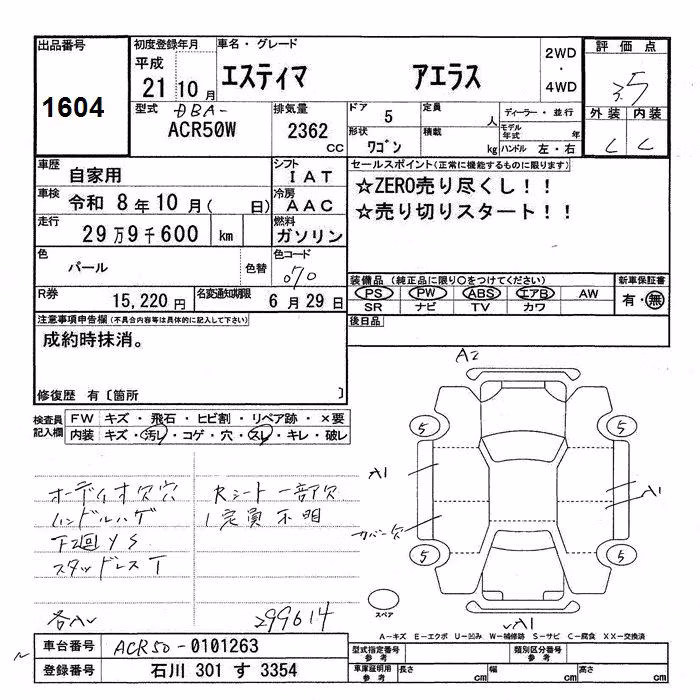 出品番号
1604
初度登録年月 車名・グレード 2WD・4WD 評価点
平成 21 10月 エスティマ アエラス 3.5
型式 DBA- ACR50W
排気量 2362 CC
ドア 5 定員 人 ディーラー・並行
形状 ワゴン 積載 kg モデル年式 年
ハンドル 左・右
外装 内装
C C
車歴 自家用
シフト IAT
車検 令和 8年 10月( 日)
冷房 AAC
走行 29万9千600 km
燃料 ガソリン
色 パール 色替
色コード 070
R券 15,220円 名変通知期限 6月29日
セールスポイント(正常に機能するものに限ります)
☆ZERO売り尽くし！！
☆売り切りスタート！！
装備品(純正品に限り○をつけてください) 新車保証書
PS PW ABS エアB AW 有・無
SR ナビ TV カワ
後日品
注意事項申告欄(不具合内容等は具体的に記入して下さい)
成約時抹消。
修復歴 有〔箇所 〕
検査員記入欄 FW キズ・飛石・ヒビ割・リペア跡・×要
内装 キズ・汚レ・コゲ・穴・スレ・キレ・破レ
オーディオ欠穴 Rシート一部欠
ハンドルハゲ 定員不明
下廻りS
スタッドレスT
各AU 299614
A2
5 5
A1 A1
カバー欠
5 5
スペア
A1
A-キズ E-エクボ U-凹み W-補修跡 S-サビ C-腐食 XX-交換済
車台番号 ACR50-0101263
登録番号 石川 301 す 3354
型式指定番号 参考 類別区分番号 参考
車庫証明用 参考 長さ cm 幅 cm 高さ cm